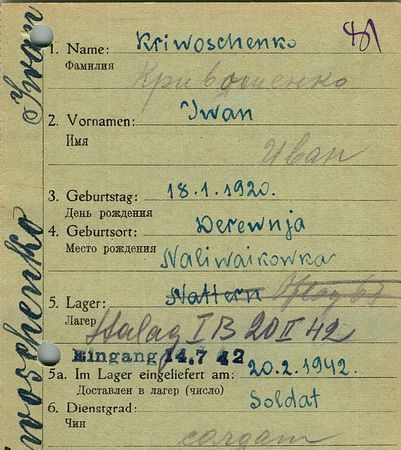 1. Name: Kriwoschenko
Фамилия
Кривошенко
2. Vornamen: Iwan
Имя
Иван
3. Geburtstag: 18.1.1920.
День рождения
4. Geburtsort: Derewnja
Место рождения
Naliwaikowka
5. Lager: Nattern Oflag 63
Лагер
Stalag I B 20 II 42
Eingang 14.7 42
5a. Im Lager eingeliefert am: 20.2.1942.
Доставлен в лагер (число)
6. Dienstgrad: Soldat
Чин
солдат
Kriwoschenko Iwan